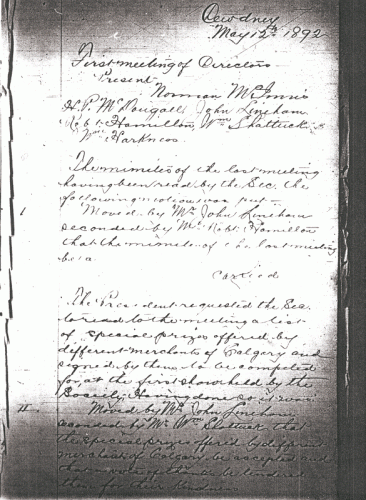 Dewdney
May 12th 1892
First meeting of Directors
Present
Norman McInnis
H.P. McDougall, John Lineham,
Robt Hamilton, Wm Shattuck &
Wm Harkness.
The minutes of the last meeting
having been read by the Sec. the
following motion was put
I
Moved by Mr John Lineham
seconded by Mr Robt Hamilton
that the minutes of the last meeting
be
Carried
The President requested the Sec.
to read to the meeting a list
of special prizes offered by
different merchants of Calgary and
signed by them to be competed
for at the first show held by the
Society. Having done so it was
II
Moved by Mr John Lineham
seconded by Mr Wm Shattuck that
the special prizes offered by different
merchants of Calgary be accepted and
that a vote of thanks be tendered
them for their kindness